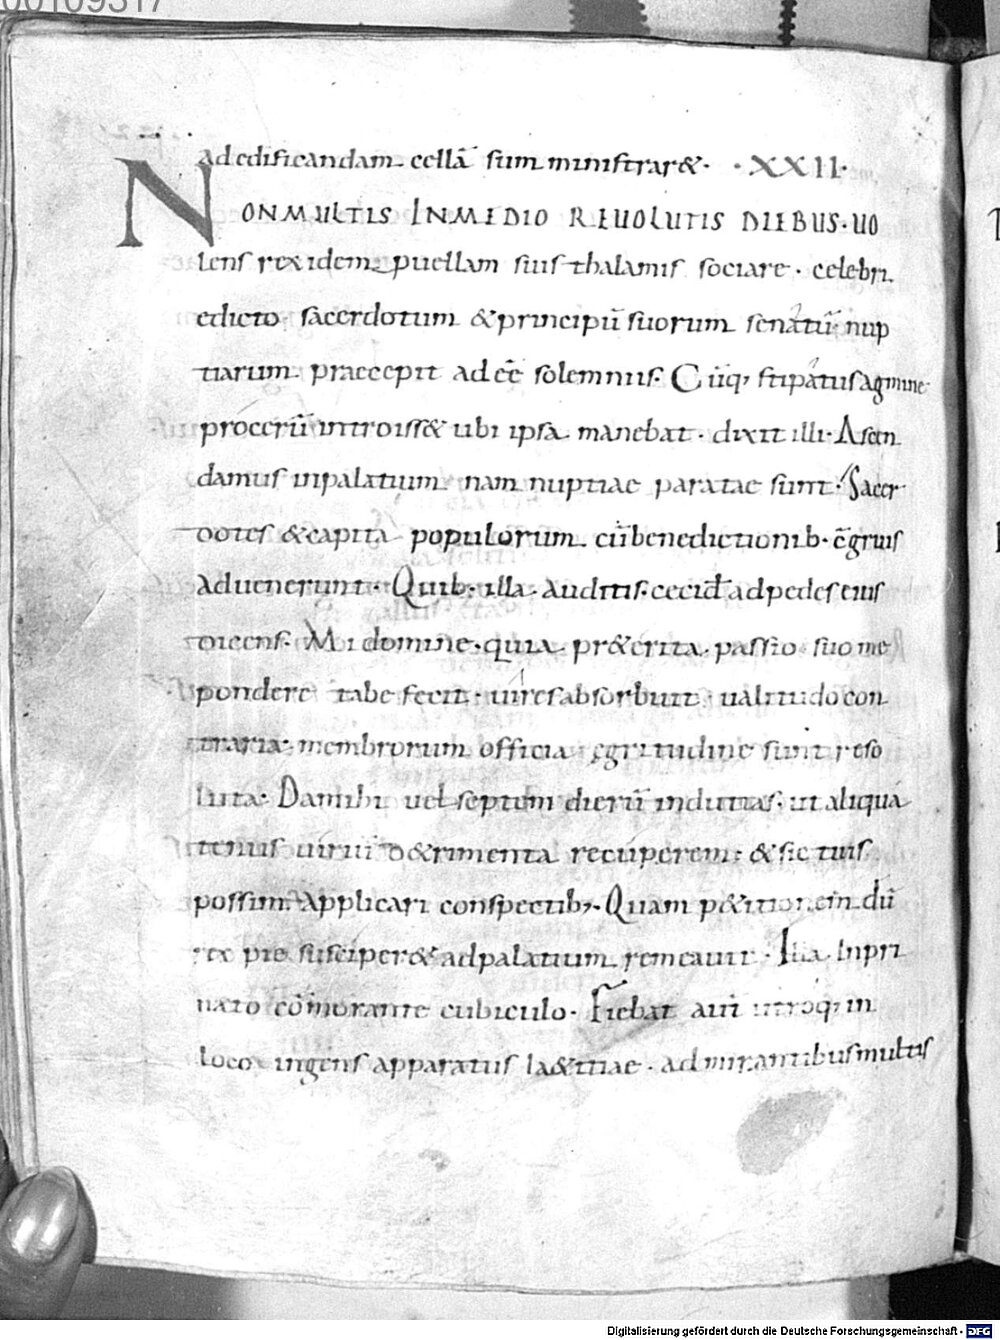 00109317
ad edificandam cellā sum ministrar&· ·XXII·
NONMULTIS INMEDIO REUOLUTIS DIEBUS·UO
lens rex idem puellam suis thalamis sociare· celebri
edicto sacerdotum &principū suorum senatū· nup
tiarum praecepit adeē solemniis· Cūq; stipatus agmine
procerū introiss& ubi ipsa manebat· dixit illi· Ascen
damus inpalatium nam nuptiae paratae sunt· Sacer
dotes &capita populorum cū benedictionib· cōgruis
aduenerunt· Quib· illa auditis· cecid̄ ad pedes eius
dicens· Mi domine· quia pr&erita passio suo me
pondere tabefecit· uires absorbuit· ualitudo con
traria· membrorum officia ęgritudine sunt reso
luta· Da mihi uel septem dierū indutias· ut aliquā
tenus uiriū d&rimenta recuperem· &sic tuis
possim applicari conspectib;· Quam p&itionem dū
rex pie susciper& ad palatium remeauit· Illa inpri
uato cōmorante cubiculo· Fiebat aut̄ utroq; in
loco ingens apparatus la&itiae· admirantibus multis
Digitalisierung gefördert durch die Deutsche Forschungsgemeinschaft - DFG